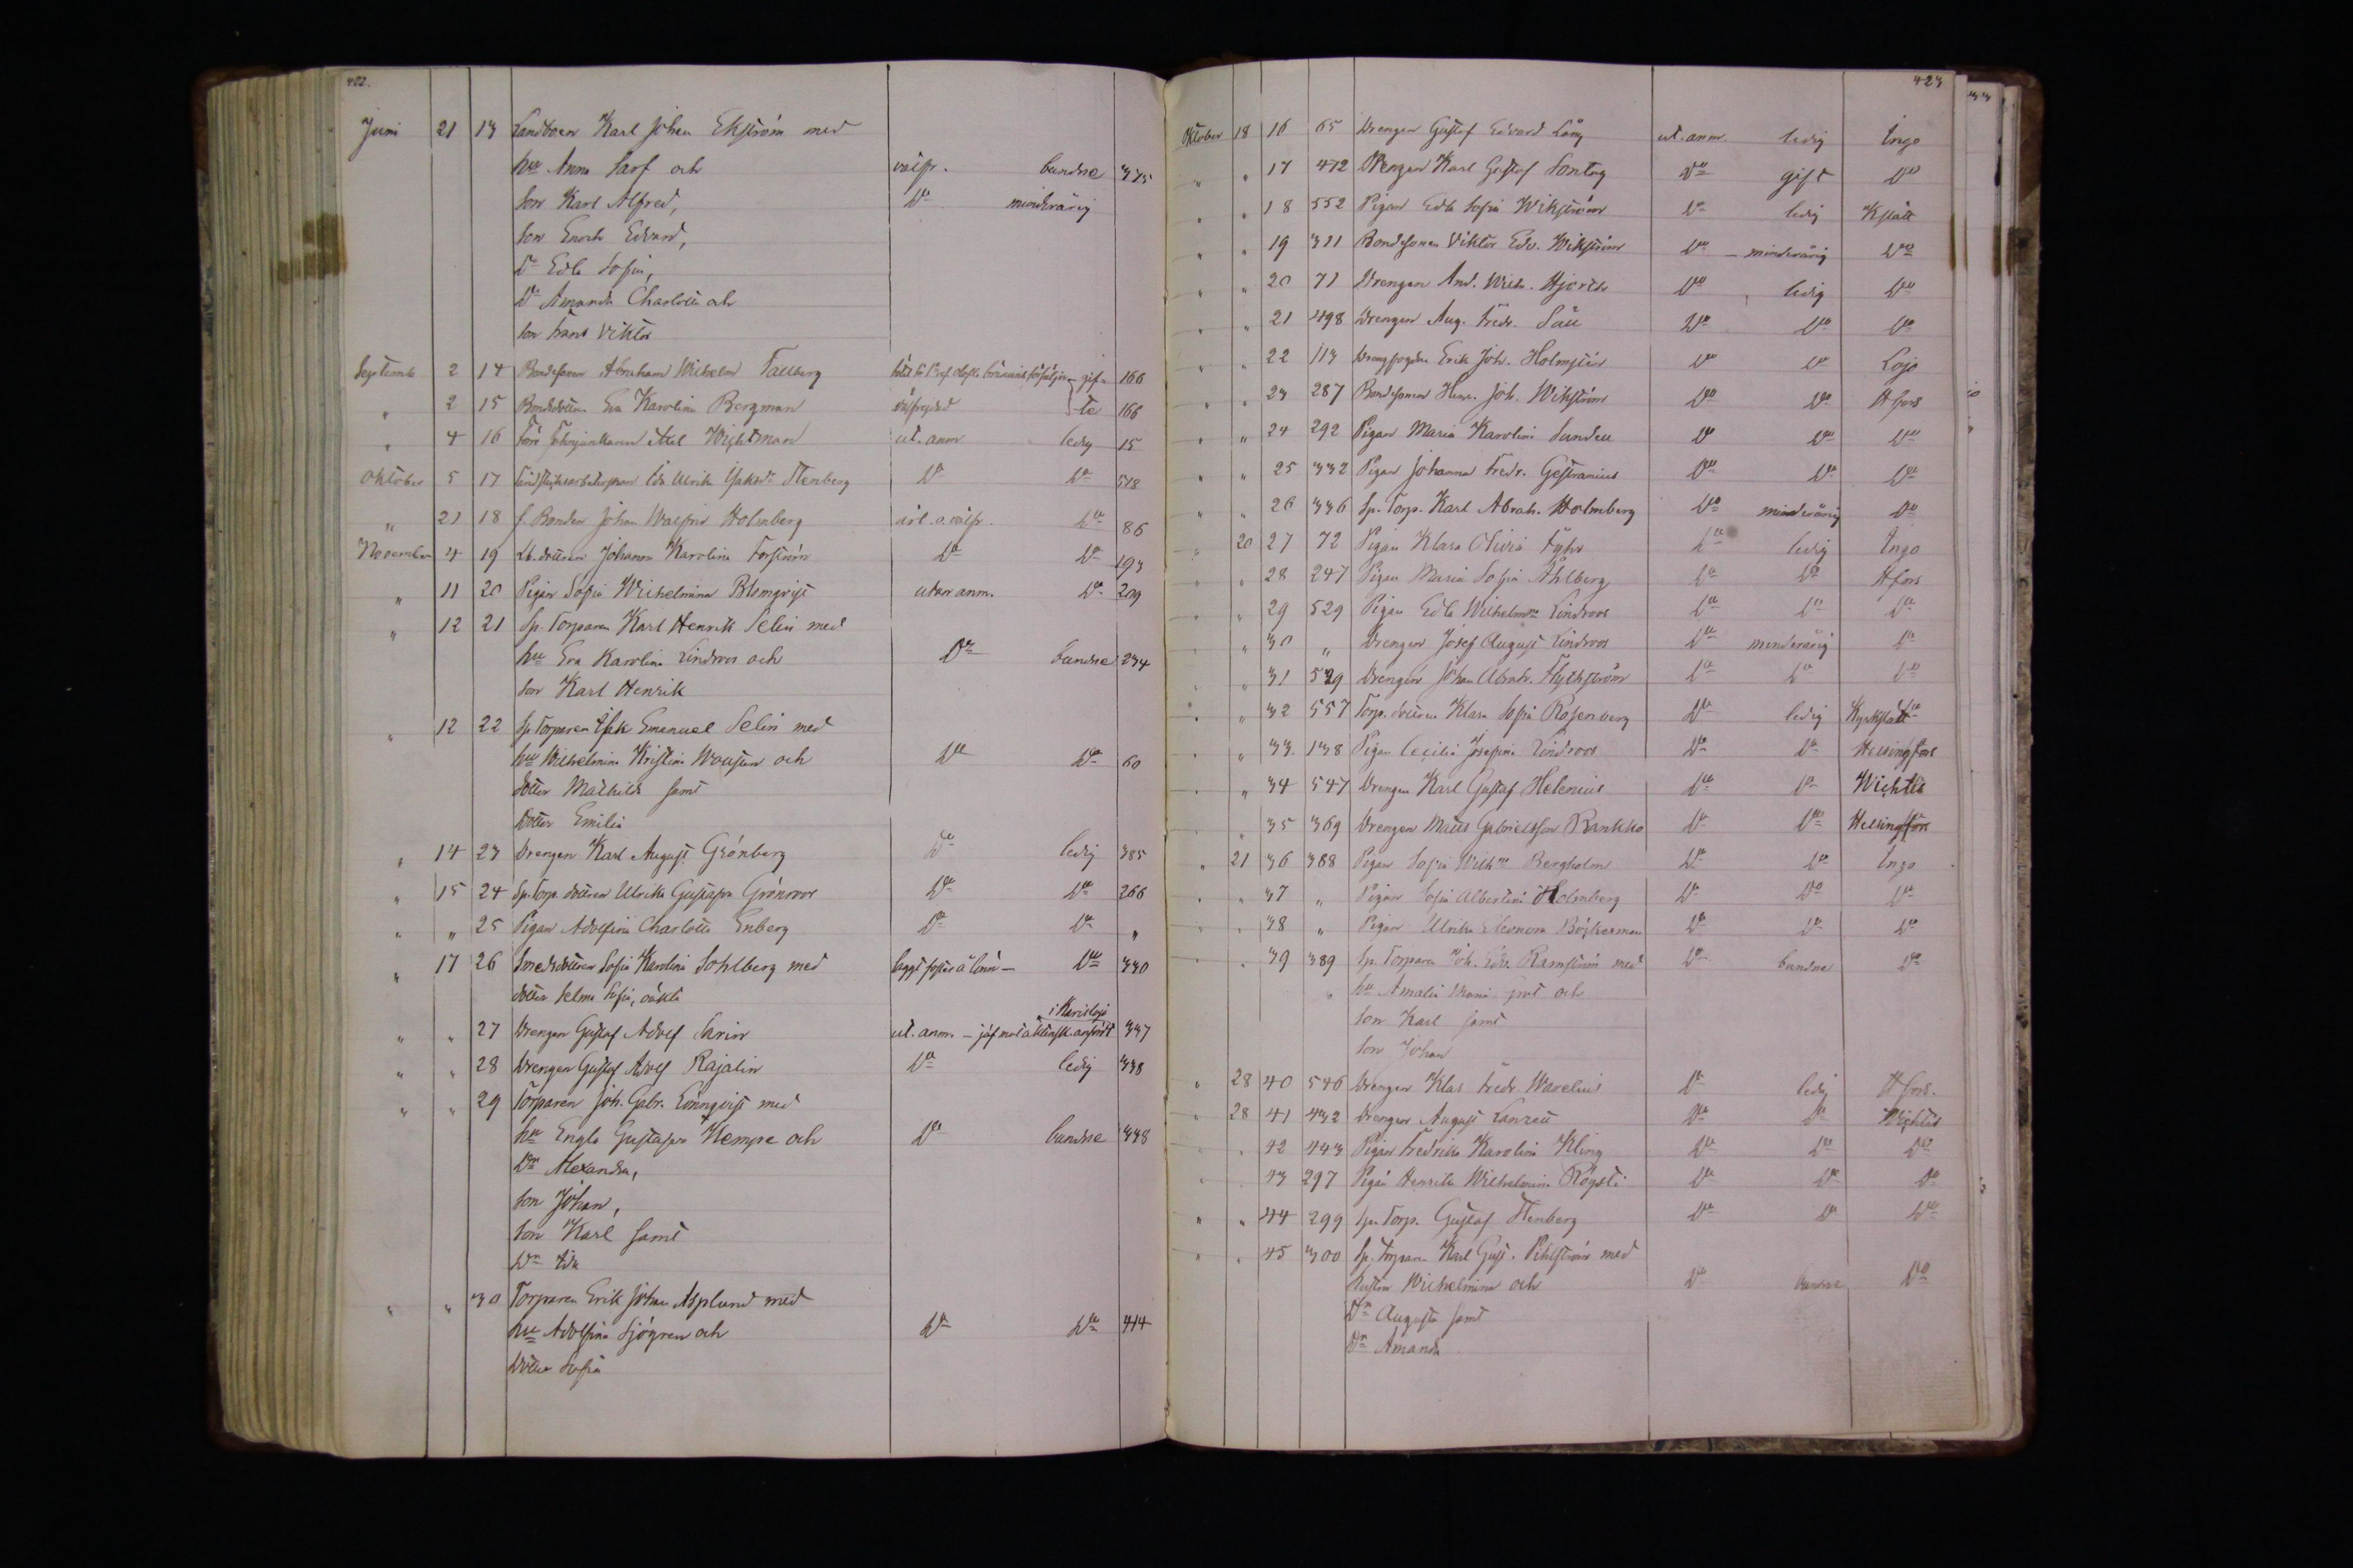 422.
Juni 21 13 Landboen Karl Johan Ekström med
hu Anna Sarf och välfr. bundne 375
son Karl Alfred, Do minderårig
son Enoch Edvard,
Dr Edla Sofia,
Dr Amanda Charlotta och
son Frans Viktor
Septemb 2 14 Bondesonen Abraham Wilhelm Tallberg gif- 166
" 2 15 Bondedottren Eva Karolina Bergman välfrejdad te 166
" 4 16 Axel Wightman ut. anm ledig 15
Oktober 5 17 Ida Ulrika Stenberg Do Do 518
" 21 18 f. Bonden Johan Walfrid Holmberg ärl. o. välfr. Do 86
November 4 19 Lb. dottren Johanna Karolina Forsström Do Do 193
" 11 20 Pigan Sofia Wilhelmina Blomqvist utan anm. Do 209
" 12 21 Sp. Torparen Karl Henrik Selin med
hu Eva Karolina Lindroos och Do bundne 234
son Karl Henrik
" 12 22 Sp. Torparen Isak Emanuel Selin med
hu Wilhelmina Kristina och Do Do 60
dotter Mathilda samt
Dotter Emilia
" 14 23 Drengen Karl August Grönberg Do ledig 385
" 15 24 Sp. Torp. dottren Ulrika Gustafva Grönroos Do Do 266
" " 25 Pigan Adolfina Charlotta Enberg Do Do "
" 17 26 Smedsdottren Sofia Karolina Sohlberg med Do 330
dotter Selma Sofia, oäkta
i Karislojo
" " 27 Drengen Gustaf Adolf Sarin ut. anm. — jäf mot äktensk. anfördt 337
" " 28 Drengen Gustaf Adolf Rajalin Do ledig 338
" " 29 Torparen Joh. Gabr. Lönnqvist med
hu Engla Gustafva Kempe och Do bundne 338
Dr Alexandra,
son Johan,
son Karl samt
Dr Ida
" " 30 Torparen Erik Johan Asplund med
hu Adolfina Sjögren och Do Do 414
Dotter Sofia
423
Oktober 18 16 65 Drengen Gustaf Edvard Lång ut. anm. ledig Ingo
" " 17 472 Drengen Karl Gustaf Sontag Do gift Do
" " 18 552 Pigan Edla Sofia Wikström Do ledig Kslätt
" " 19 311 Bondesonen Viktor Edv. Wikström Do minderårig Do
" " 20 71 Drengen And. Wilh. Hjorth Do ledig Do
" " 21 498 Drengen Aug. Fredr. Do Do Do
" " 22 113 Drengfogden Erik Joh. Holmstén Do Do Lojo
" " 23 287 Bondesonen Henr. Joh. Wikström Do Do Hfors
" " 24 292 Pigan Maria Karolina Sundell Do Do Do
" " 25 332 Pigan Johanna Fredr. Gestranius Do Do Do
" " 26 336 Sp. Torp. Karl Abrah. Holmberg Do minderårig Do
" 20 27 72 Pigan Klara Olivia Fyhr Do ledig Ingo
" " 28 247 Pigan Maria Sofia Åhlberg Do Do Hfors
" " 29 529 Pigan Edla Wilhelma Lindroos Do Do Do
" " 30 " Drengen Josef August Lindroos Do minderårig Do
" " 31 529 Drengen Johan Abrah. Flyckström Do Do Do
" " 32 557 Torp. dottren Klara Sofia Rosenberg Do ledig Kyrkslätt
" " 33 138 Pigan Cecilia Josefina Lindroos Do Do Helsingfors
" " 34 547 Drengen Karl Gustaf Helenius Do Do Wichtis
" " 35 369 Drengen Matts Gabrielsson Rankko Do Do Helsingfors
" 21 36 388 Pigan Sofia Wilhna Bergholm Do Do Ingo
" " 37 " Pigan Sofia Albertina Holmberg Do Do Do
" " 38 " Pigan Ulrika Eleonora Böckerman Do Do Do
" " 39 389 Sp. Torparen Joh. Edv. Ramström med Do bundne Do
" hu Amalia Maria och
son Karl samt
son Johan
" 28 40 546 Drengen Klas Fredr. Warelius Do ledig Hfors.
" 28 41 432 Drengen August Do Do Wichtis
" " 42 443 Pigan Fredrika Karolina Kling Do Do Do
" " 43 297 Pigan Henrika Wilhelmina Röysti Do Do Do
" " 44 299 Sp. Torp. Gustaf Stenberg Do Do Do
" " 45 300 Sp. Torparen Karl Gust. Pihlström med
hustru Wilhelmina och Do bundne Do
Dr Augusta samt
Dr Amanda